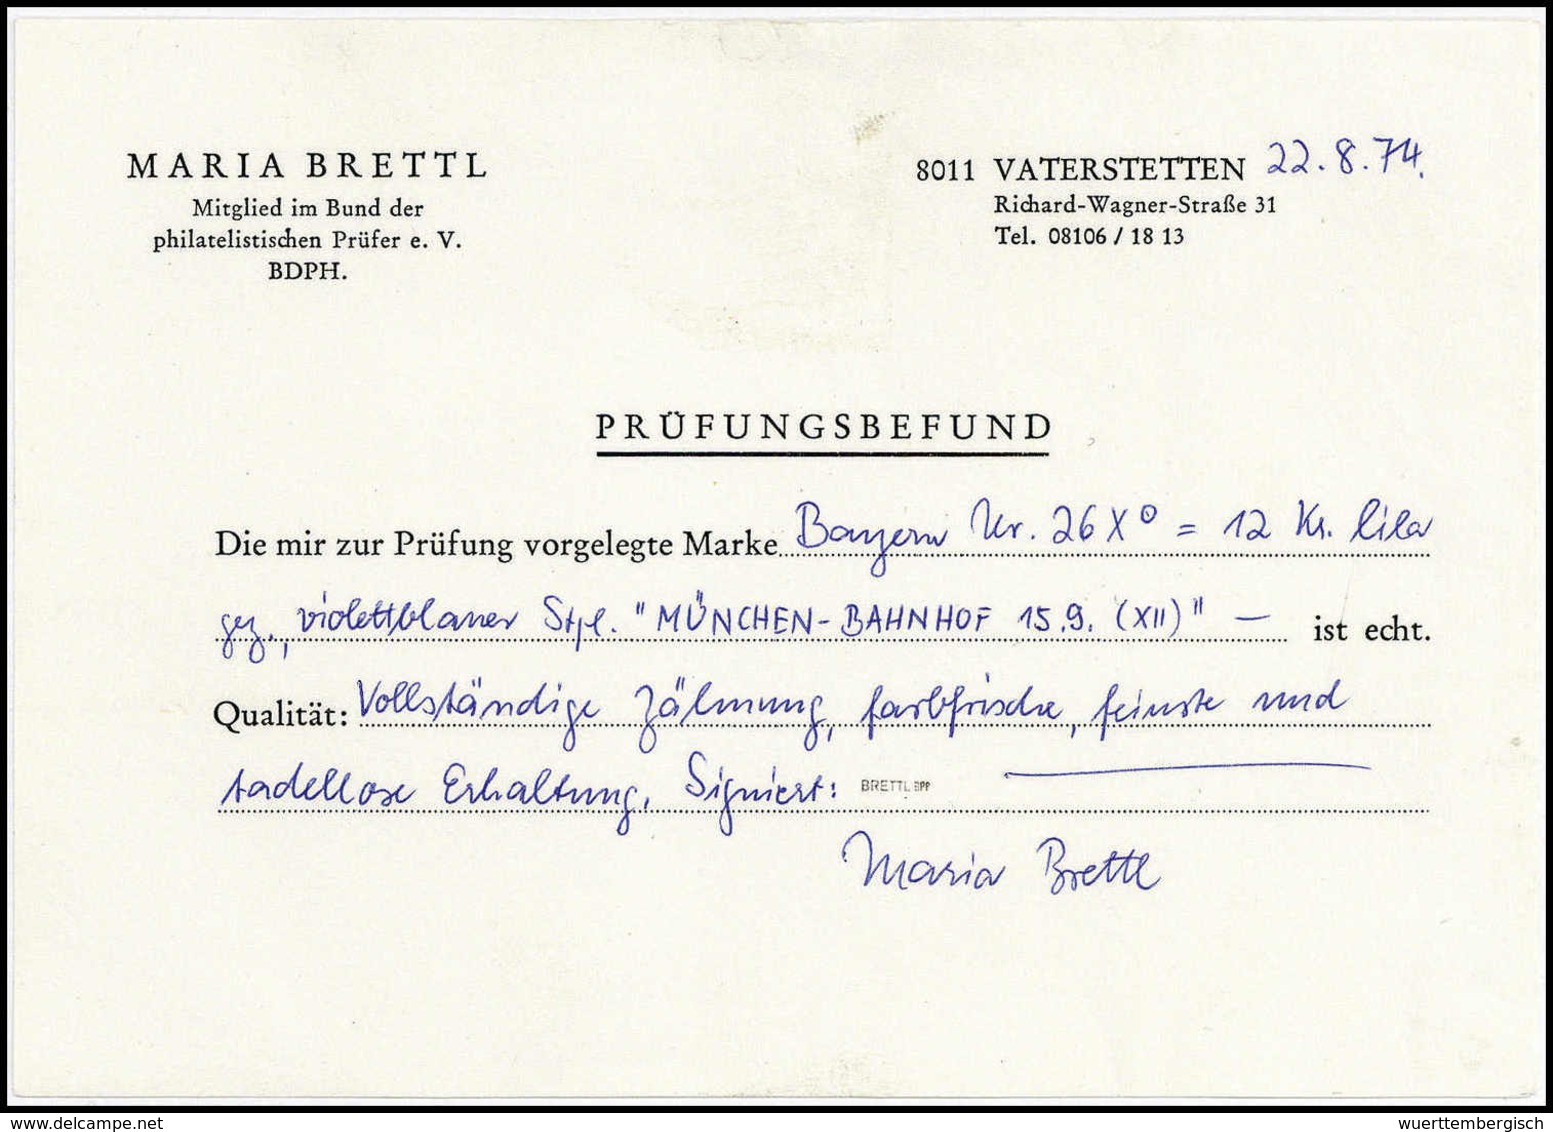 MARIA BRETTL
Mitglied im Bund der
philatelistischen Prüfer e. V.
BDPH.
8011 VATERSTETTEN 22.8.74.
Richard-Wagner-Straße 31
Tel. 08106 / 18 13
PRÜFUNGSBEFUND
Die mir zur Prüfung vorgelegte Marke Bayern Nr. 26 X° = 12 Kr. lila
gez., violettblauer Stpl. "MÜNCHEN-BAHNHOF 15.9. (XII)" — ist echt.
Qualität: Vollständige Zähnung, farbfrische, feinste und
tadellose Erhaltung. Signiert: BRETTL BPP
Maria Brettl
delcampe.net
wuerttembergisch